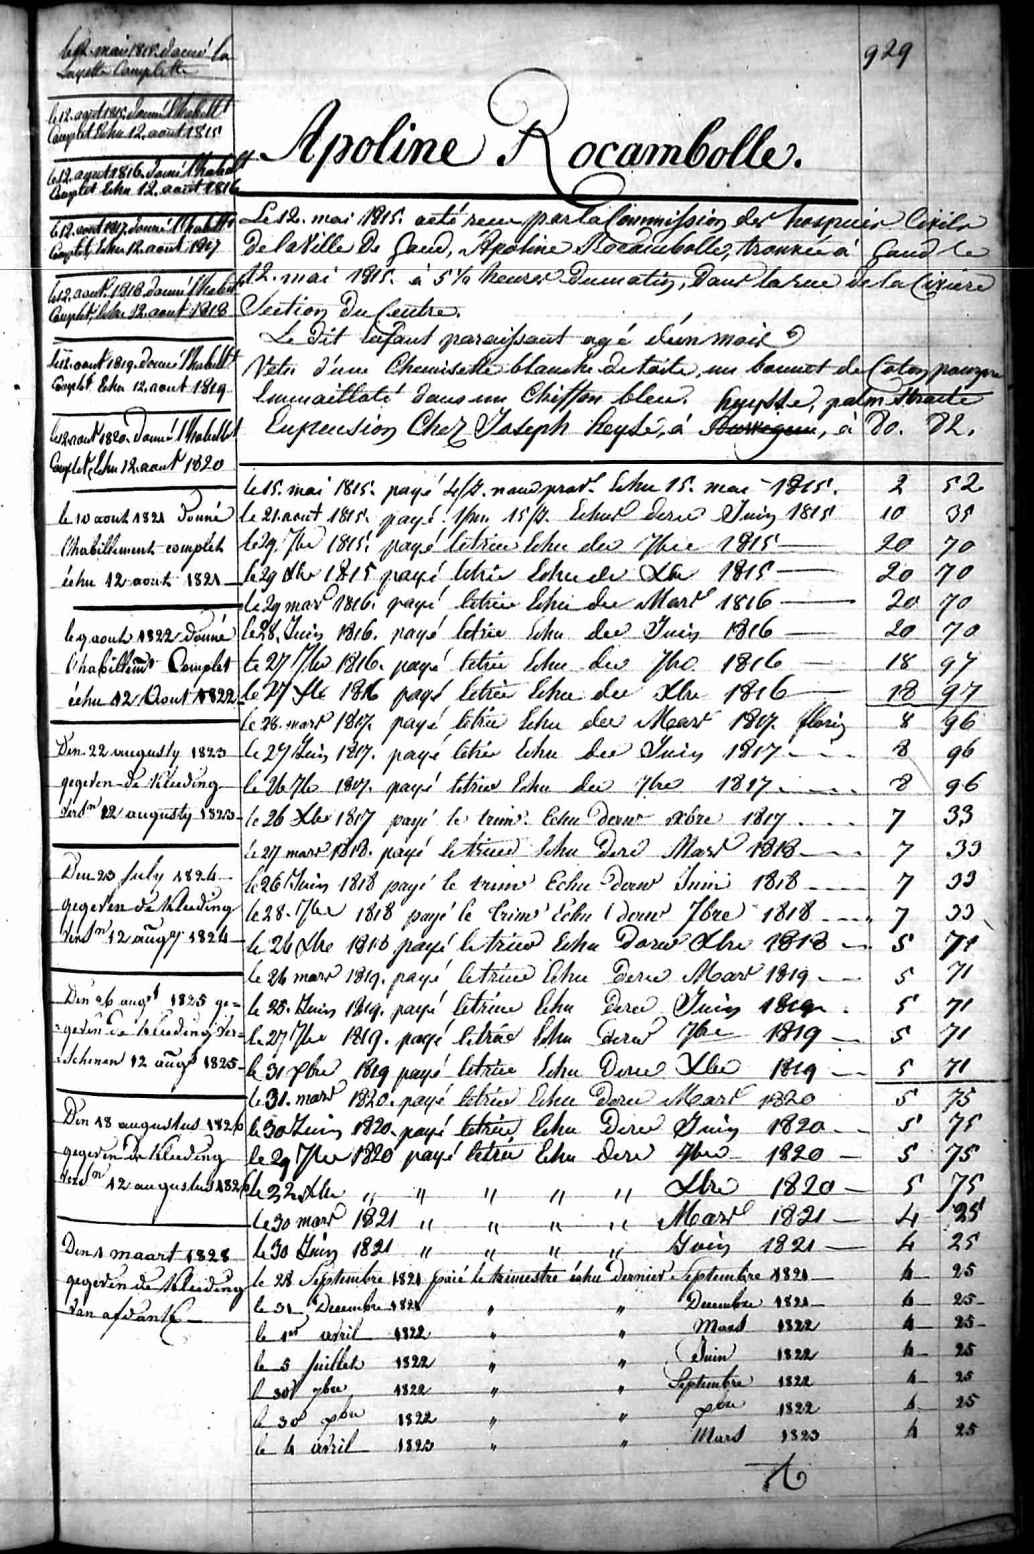 929
Apoline Rocambolle.
Le 12. mai 1815. a été recu par la Commission des hospices Civils
De la Ville de Gand, Apoline Rocambolle, trouvée à Gand le
12. mai 1815. à 5 heures Du matin, Dans la rue de la
Section Du Centre.
Le Dit Enfant paraissant agé d'un mois
Vetu d'une Chemisette blanche de toile, un bonnet de Coton pourpre
Emmailloté dans un Chiffon bleu. huysse,
En pension Chez Joseph heyse, à à Do. D2.
le 12 mai 1815. donné la
Layette Complette
le 12. aout 1815. donné l'habillt
Complet Echu 12. aout 1815
le 12. aout 1816. donné l'habillt
Complet Echu 12. aout 1816
le 12. aout 1817. donné l'habillt
Complet, Echu 12. aout 1817
le 12. aout. 1818. donné l'habillt
Complet, Echu 12. aout 1818
le 12. aout 1819. donné l'habillt
Complt Echu 12. aout 1819
le 12 aout 1820. donné l'habillt
Complet, Echu 12. aout 1820
le 10 aout 1821 donné
l'habillement complet
échu 12 aout 1821
le 9 aout 1822 donné
l'habillemt Complet
échu 12 Aout 1822
Den 22 augusty 1823
gegeven de Kleeding
versn 12 augusty 1823
Den 23 July 1824
gegeven de Kleeding
versn 12 augy 1824
Den 26 augt 1825 ge-
geven de Kleeding ver-
schenen 12 augt 1825
Den 18 augustus 1826
gegeven de Kleeding
versn 12 augustus 1826
Den 1 maart 1828
gegeven de Kleeding
van
le 15. mai 1815. payé Echu 15. mai 1815. 2 52
le 21. aout 1815. payé 1/m 15/ Echus dernr Juin 1815 10 35
le 29. 7bre 1815. payé le trim Echu der 7bre 1815 20 70
le 29 Xbr 1815 payé le trim Echu de Xbr 1815 20 70
le 29 mars 1816. payé le trim Echu der Mars 1816 20 70
le 28, Juin 1816. payé le trim Echu der Juin 1816 20 70
le 27 7br 1816. payé le trim Echu der 7br 1816 18 97
le 27 Xbr 1816 payé le trim Echu der Xbr 1816 18 97
le 28. mars 1817. payé le trim Echu der Mars 1817. florins 8 96
le 27 Juin 1817. payé le trim Echu der Juin 1817 8 96
le 26 7br 1817. payé le trim Echu der 7bre 1817 8 96
le 26 Xbr 1817 payé le trim. Echu dernr xbre 1817 7 33
le 27 mars 1818. payé le trim Echu Dere Mars 1818 7 33
le 26 Juin 1818 payé le trimr Echu Dernr Juin 1818 7 33
le 28. 7bre 1818 payé le trimr Echu dernr 7bre 1818 7 33
le 26 Xbre 1818 payé le trimr Echu Dernr Xbre 1818 5 71
le 26 mars 1819. payé le trim Echu Dere Mars 1819 5 71
le 25. Juin 1819. payé le trim Echu Dere Juin 1819 5 71
le 27 7bre 1819. payé le trim Echu Dere 7bre 1819 5 71
le 31 xbre 1819 payé le trim Echu Dere Xbre 1819 5 71
le 31. mars 1820. payé le trim Echu Dere Mars 1820 5 75
le 30 Juin 1820. payé le trim Echu Dere Juin 1820 5 75
le 29 7bre 1820 payé le trim Echu dere 7bre 1820 5 75
le 22 Xbre " " " " " Xbre 1820 5 75
le 30 mars 1821 " " " " " Mars 1821 4 25
le 30 Juin 1821 " " " " Juin 1821 4 25
le 28 Septembre 1821 paié le trimestre échu dernier Septembre 1821 4 25
le 31 Decembre 1821 " " Decembre 1821 4 25
le 1er avril 1822 " " Mars 1822 4 25
le 5 Juillet 1822 " " Juin 1822 4 25
le 30 7bre 1822 " " Septembre 1822 4 25
le 30 xbre 1822 " " xbre 1822 4 25
le 4 avril 1823 " " Mars 1823 4 25